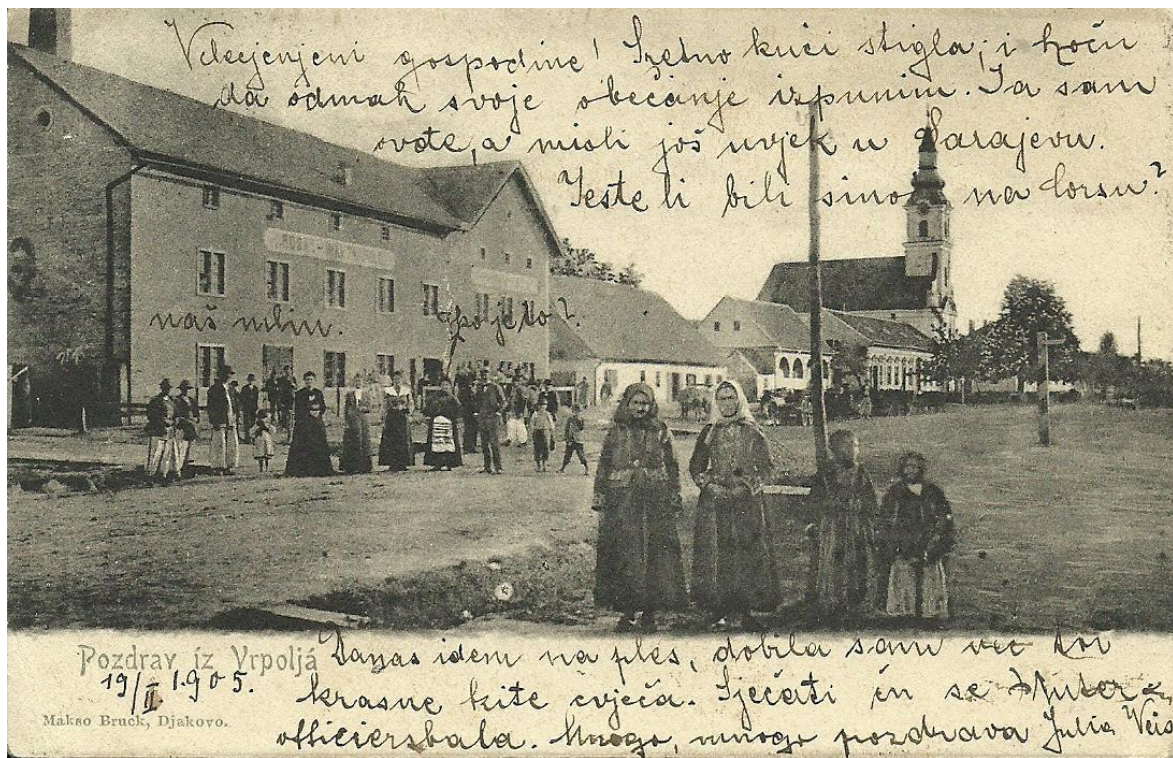 Velecjenjeni gospodine! Sretno kući stigla, i hoću
da odmah svoje obećanje izpunim. Ja sam
ovdte, a misli još uvjek u Sarajevu.
Jeste li bili sinoć na Corsu?
naš mlin.
Pozdrav iz Vrpoljá
19/II 1905.
Makso Bruck, Djakovo.
Danas idem na ples, dobila sam već
krasne kite cvjeća. Sječati ću se Unter-
officiersbala. Mnogo, mnogo pozdrava Julia Weis